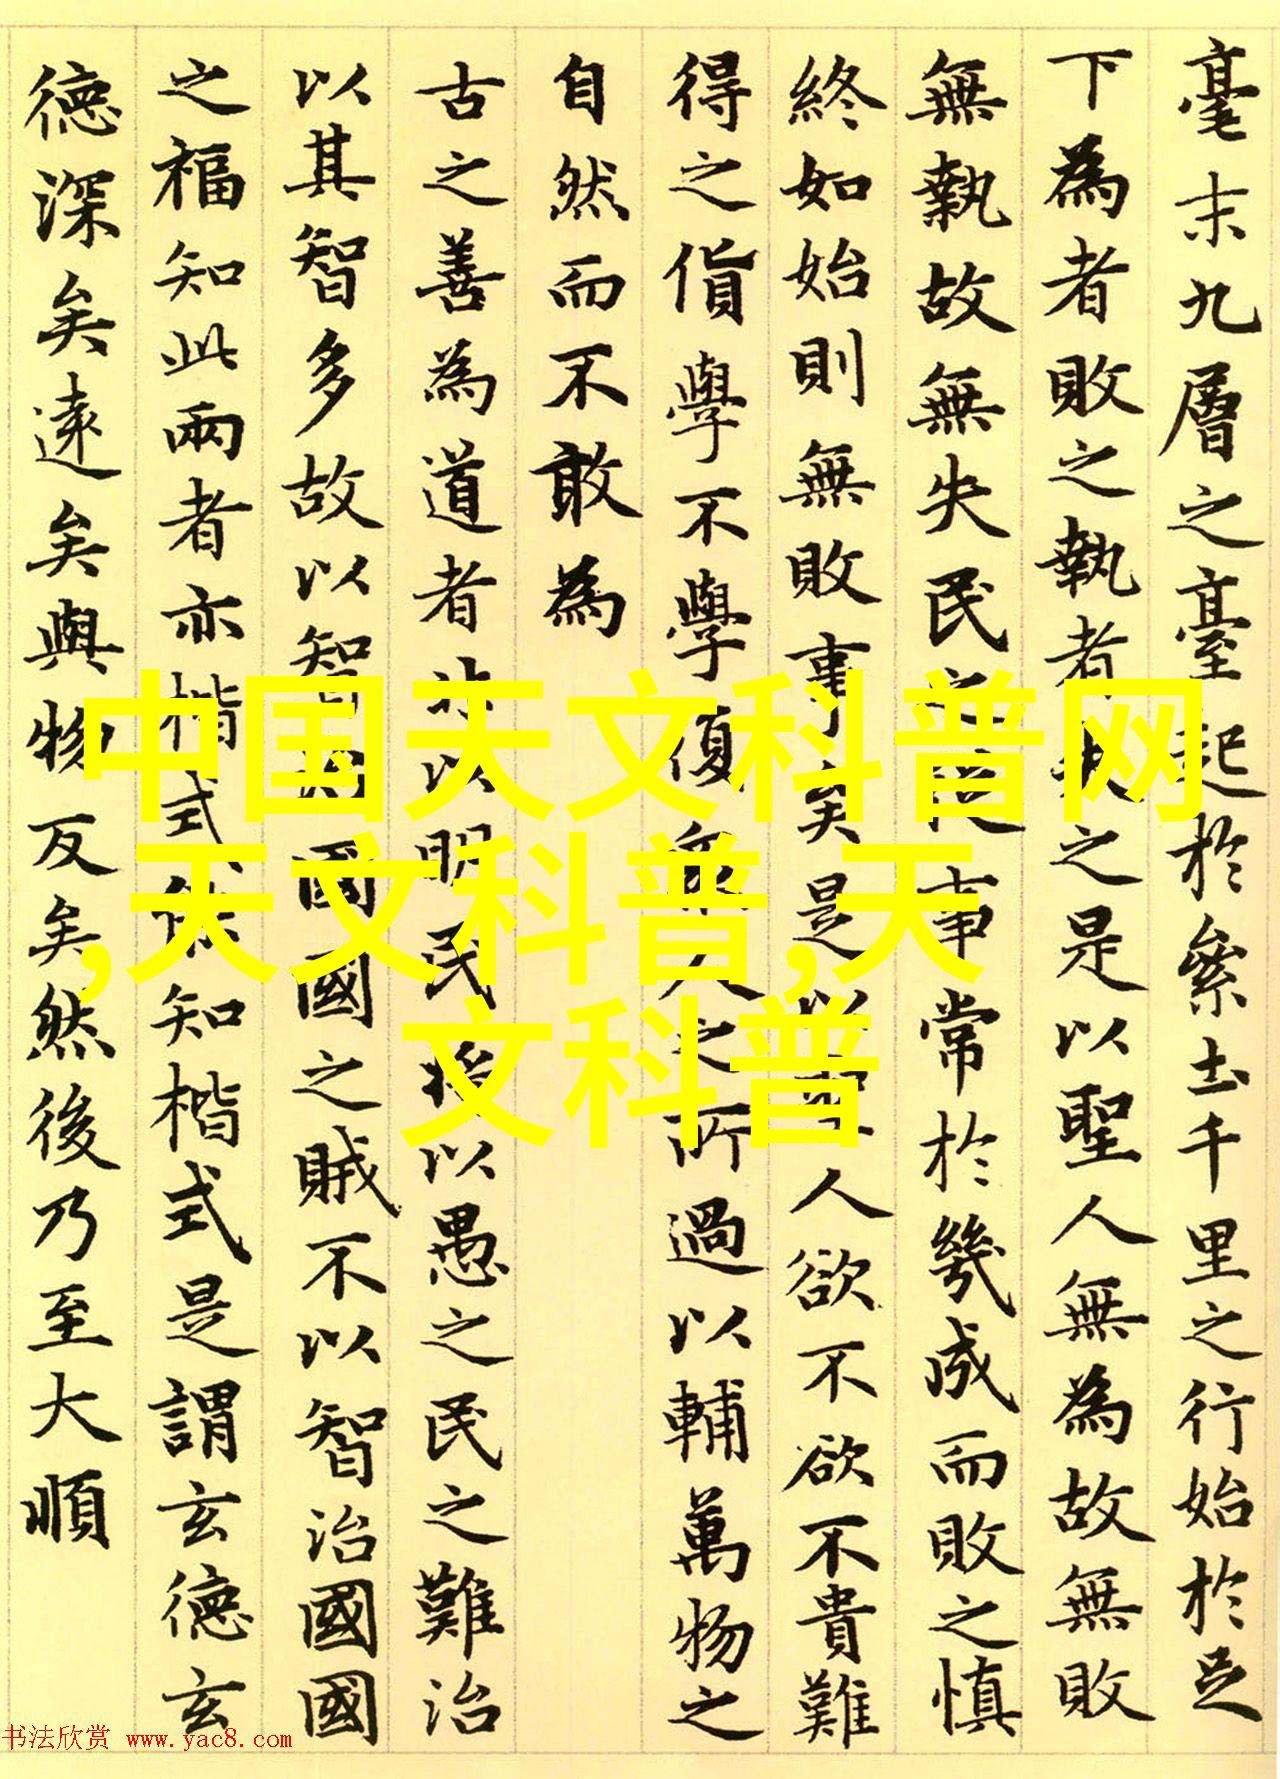 毫末九層之臺起於絫土千里之行始於足
下為者敗之執者失之是以聖人無為故無敗
無執故無失民之從事常於幾成而敗之慎
終如始則無敗事矣是以聖人欲不欲不貴難
得之貨學不學復眾人之所過以輔萬物之
自然而不敢為
古之善為道者非以明民將以愚之民之難治
以其智多故以智治國國之賊不以智治國國
之福知此兩者亦楷式能知楷式是謂玄德玄
德深矣遠矣與物反矣然後乃至大順
中国天文科普网
,天文科普,天
文科普
书法欣赏 www.yac8.com